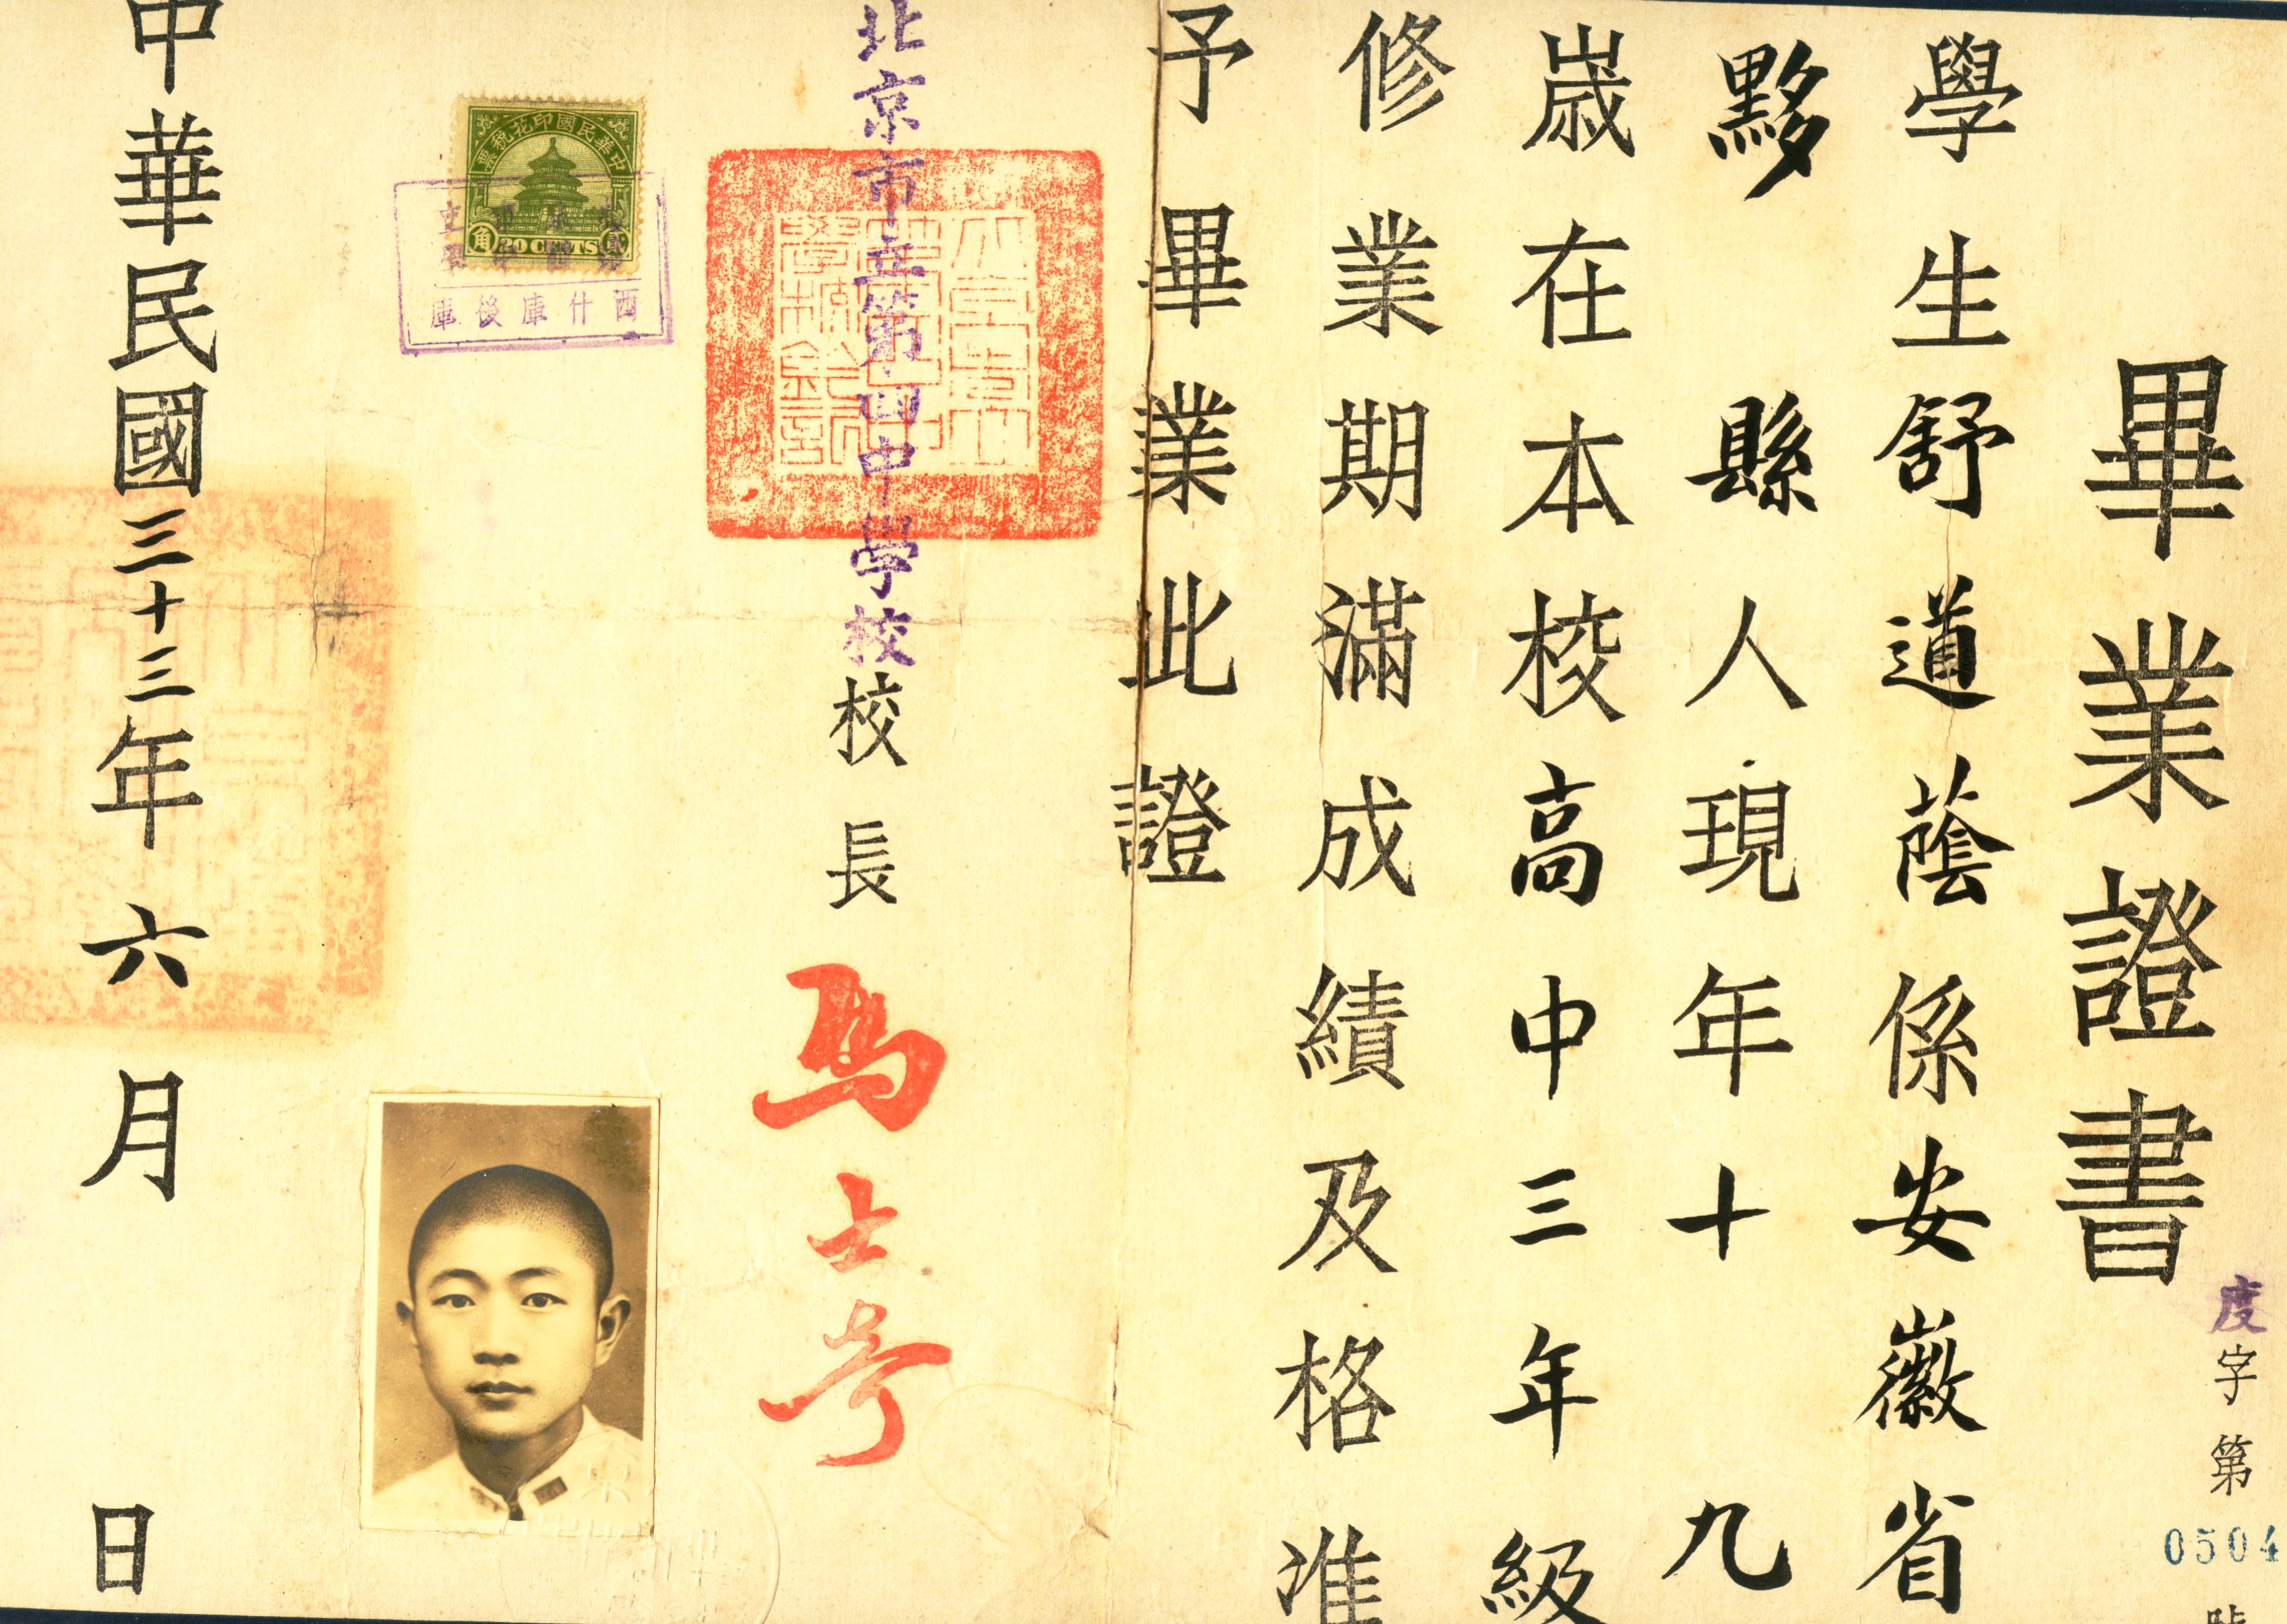 畢業證書
度字第
0504
學生舒道蔭係安徽省
黟縣人現年十九
歲在本校高中三年級
修業期滿成績及格准
予畢業此證
北京市立第四中學校校長馬士奇
中華民國印花稅票
角
20 CENTS
西什庫後庫
中華民國三十三年六月日